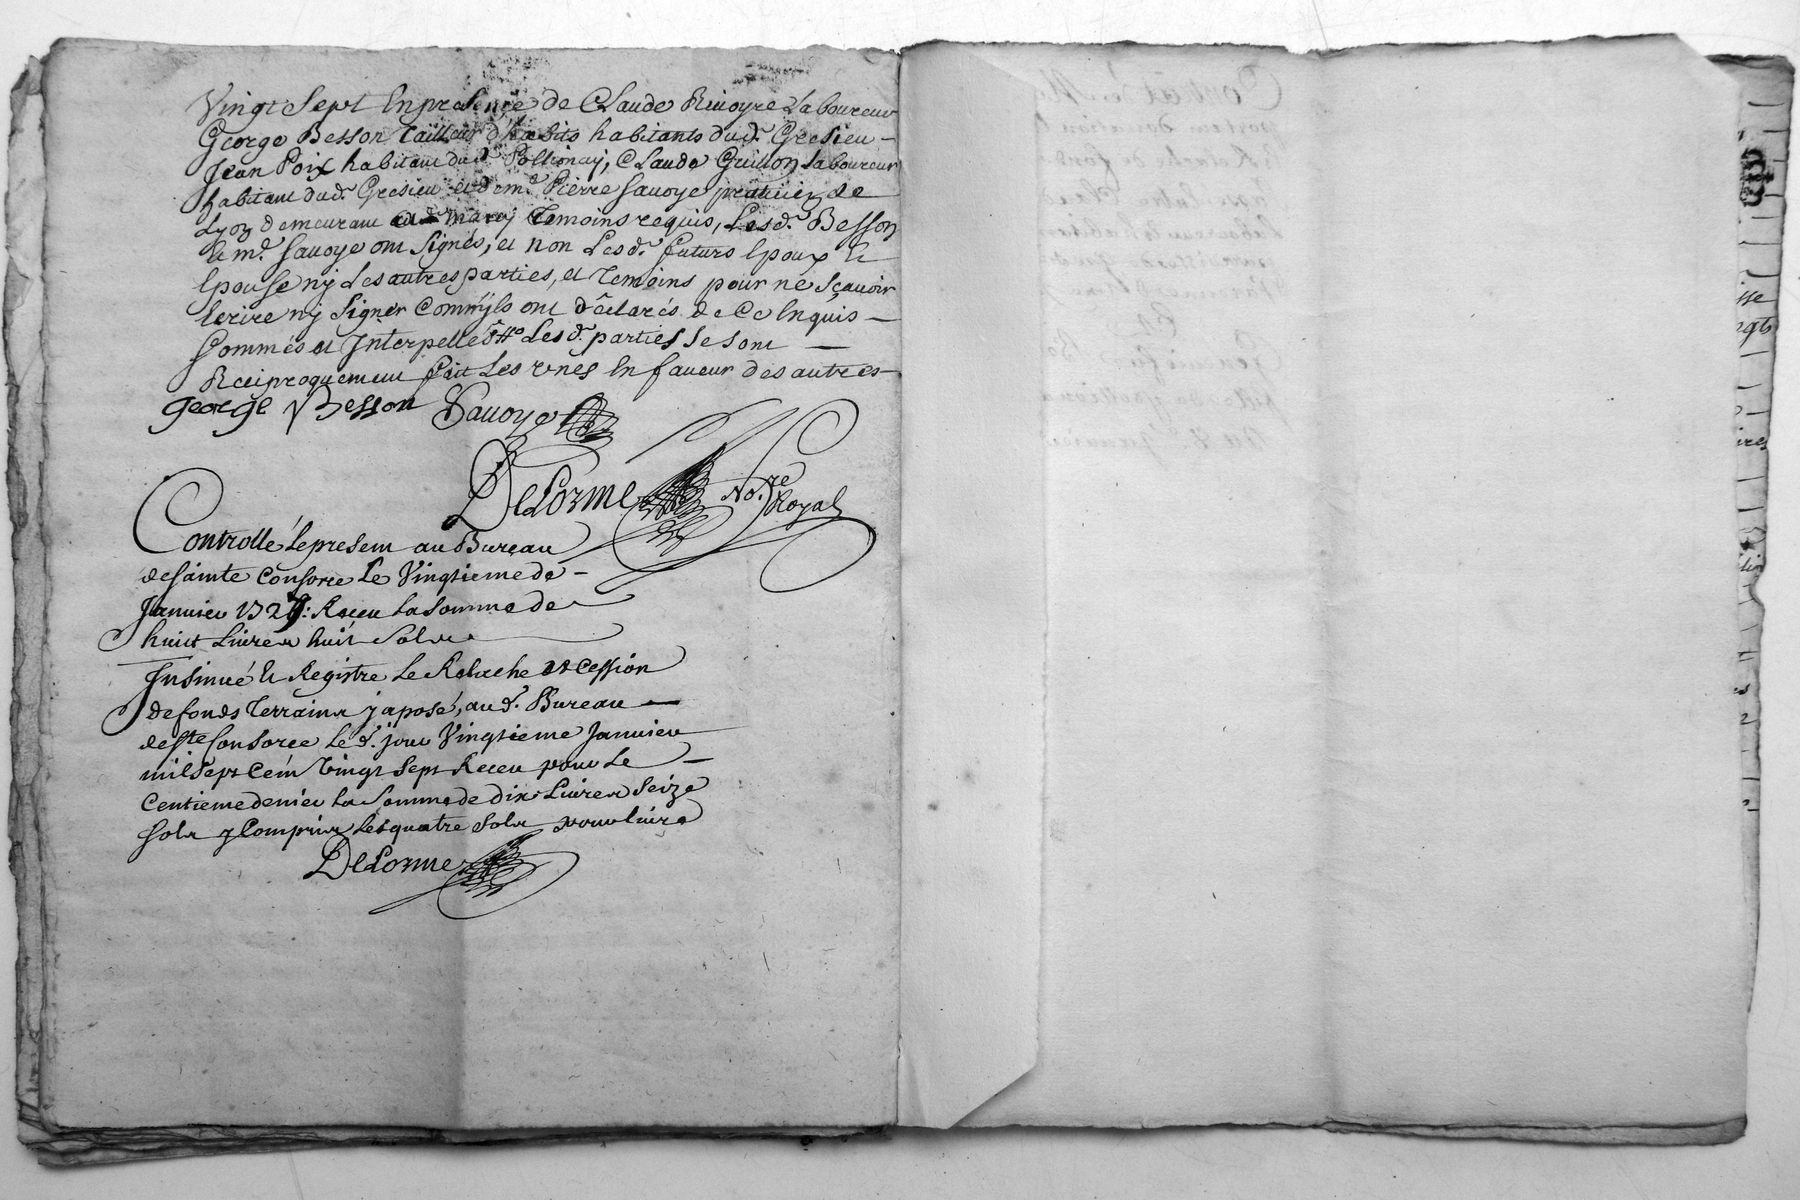 Vingt Sept En presence de Claude Rivoyre Laboureur
George Besson Tailleur d'habits habitants dud. Gresieu
Jean Poix habitant dud. Pollionay, Claude Guillon Laboureur
habitant dud. Gresieu et de m.e Pierre Savoye praticien de
Lyon demeurant a marcy Temoins requis, Lesd. Besson
et m.e Savoye ont Signés, et non Lesd. futurs Epoux et
Epouse ny Les autres parties, et Temoins pour ne Sçavoir
Ecrire ny Signer Comm'yls ont déclarés de Ce Enquis
Sommés et Interpellés Lesd. parties Se sont
Reciproquement fait Les unes En faveur des autres
george Besson Savoye
DeLorme No.re Royal
Controllé Le present au Bureau
de Sainte Consorce Le Vingtieme de
Janvier 1727: Receu La Somme de
huict Livres huit Sols
Insinué et Registre Le Relache et Cession
de fonds Terrains y aposé, aud. Bureau
de Ste Consorce Led. jour Vingtieme Janvier
mil Sept Cent Vingt Sept Receu pour Le
Centieme denier La Somme de dix Livres Seize
Sols y Compris Les quatre Sols pour Livre
DeLorme